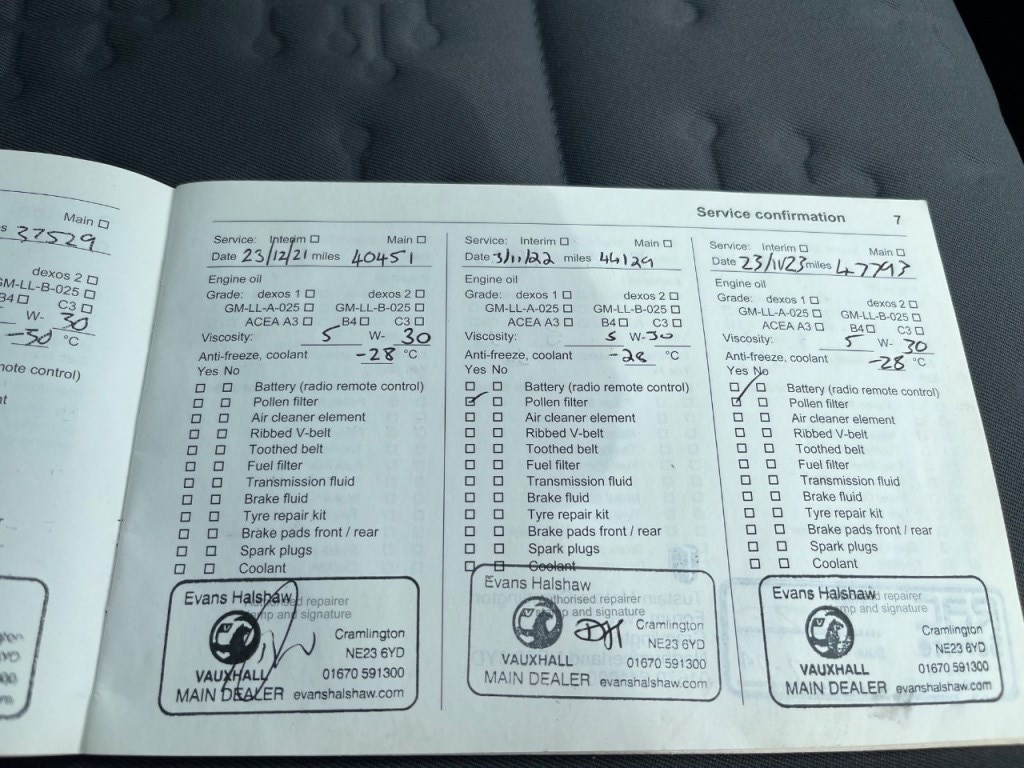 Main ☐
37529
dexos 2 ☐
GM-LL-B-025 ☐
B4 ☐ C3 ☐
W- 30
-30 °C
Service confirmation 7
Service: Interim ☐ Main ☐
Date 23/12/21 miles 40451
Engine oil
Grade: dexos 1 ☐ dexos 2 ☐
GM-LL-A-025 ☐ GM-LL-B-025 ☐
ACEA A3 ☐ B4 ☐ C3 ☐
Viscosity: 5 W- 30
Anti-freeze, coolant -28 °C
Yes No
☐ ☐ Battery (radio remote control)
☐ ☐ Pollen filter
☐ ☐ Air cleaner element
☐ ☐ Ribbed V-belt
☐ ☐ Toothed belt
☐ ☐ Fuel filter
☐ ☐ Transmission fluid
☐ ☐ Brake fluid
☐ ☐ Tyre repair kit
☐ ☐ Brake pads front / rear
☐ ☐ Spark plugs
☐ ☐ Coolant
Evans Halshaw
repairer
and signature
Cramlington
NE23 6YD
VAUXHALL 01670 591300
MAIN DEALER evanshalshaw.com
Service: Interim ☐ Main ☐
Date 3/11/22 miles 44129
Engine oil
Grade: dexos 1 ☐ dexos 2 ☐
GM-LL-A-025 ☐ GM-LL-B-025 ☐
ACEA A3 ☐ B4 ☐ C3 ☐
Viscosity: 5 W-30
Anti-freeze, coolant -28 °C
Yes No
☐ ☐ Battery (radio remote control)
☑ ☐ Pollen filter
☐ ☐ Air cleaner element
☐ ☐ Ribbed V-belt
☐ ☐ Toothed belt
☐ ☐ Fuel filter
☐ ☐ Transmission fluid
☐ ☐ Brake fluid
☐ ☐ Tyre repair kit
☐ ☐ Brake pads front / rear
☐ ☐ Spark plugs
☐ ☐ Coolant
Evans Halshaw
Authorised repairer
and signature
Cramlington
NE23 6YD
VAUXHALL 01670 591300
MAIN DEALER evanshalshaw.com
Service: Interim ☐ Main ☐
Date 23/11/23 miles 47793
Engine oil
Grade: dexos 1 ☐ dexos 2 ☐
GM-LL-A-025 ☐ GM-LL-B-025 ☐
ACEA A3 ☐ B4 ☐ C3 ☐
Viscosity: 5 W- 30
Anti-freeze, coolant -28 °C
Yes No
☐ ☐ Battery (radio remote control)
☑ ☐ Pollen filter
☐ ☐ Air cleaner element
☐ ☐ Ribbed V-belt
☐ ☐ Toothed belt
☐ ☐ Fuel filter
☐ ☐ Transmission fluid
☐ ☐ Brake fluid
☐ ☐ Tyre repair kit
☐ ☐ Brake pads front / rear
☐ ☐ Spark plugs
☐ ☐ Coolant
Evans Halshaw
repairer
and signature
Cramlington
NE23 6YD
VAUXHALL 01670 591300
MAIN DEALER evanshalshaw.com